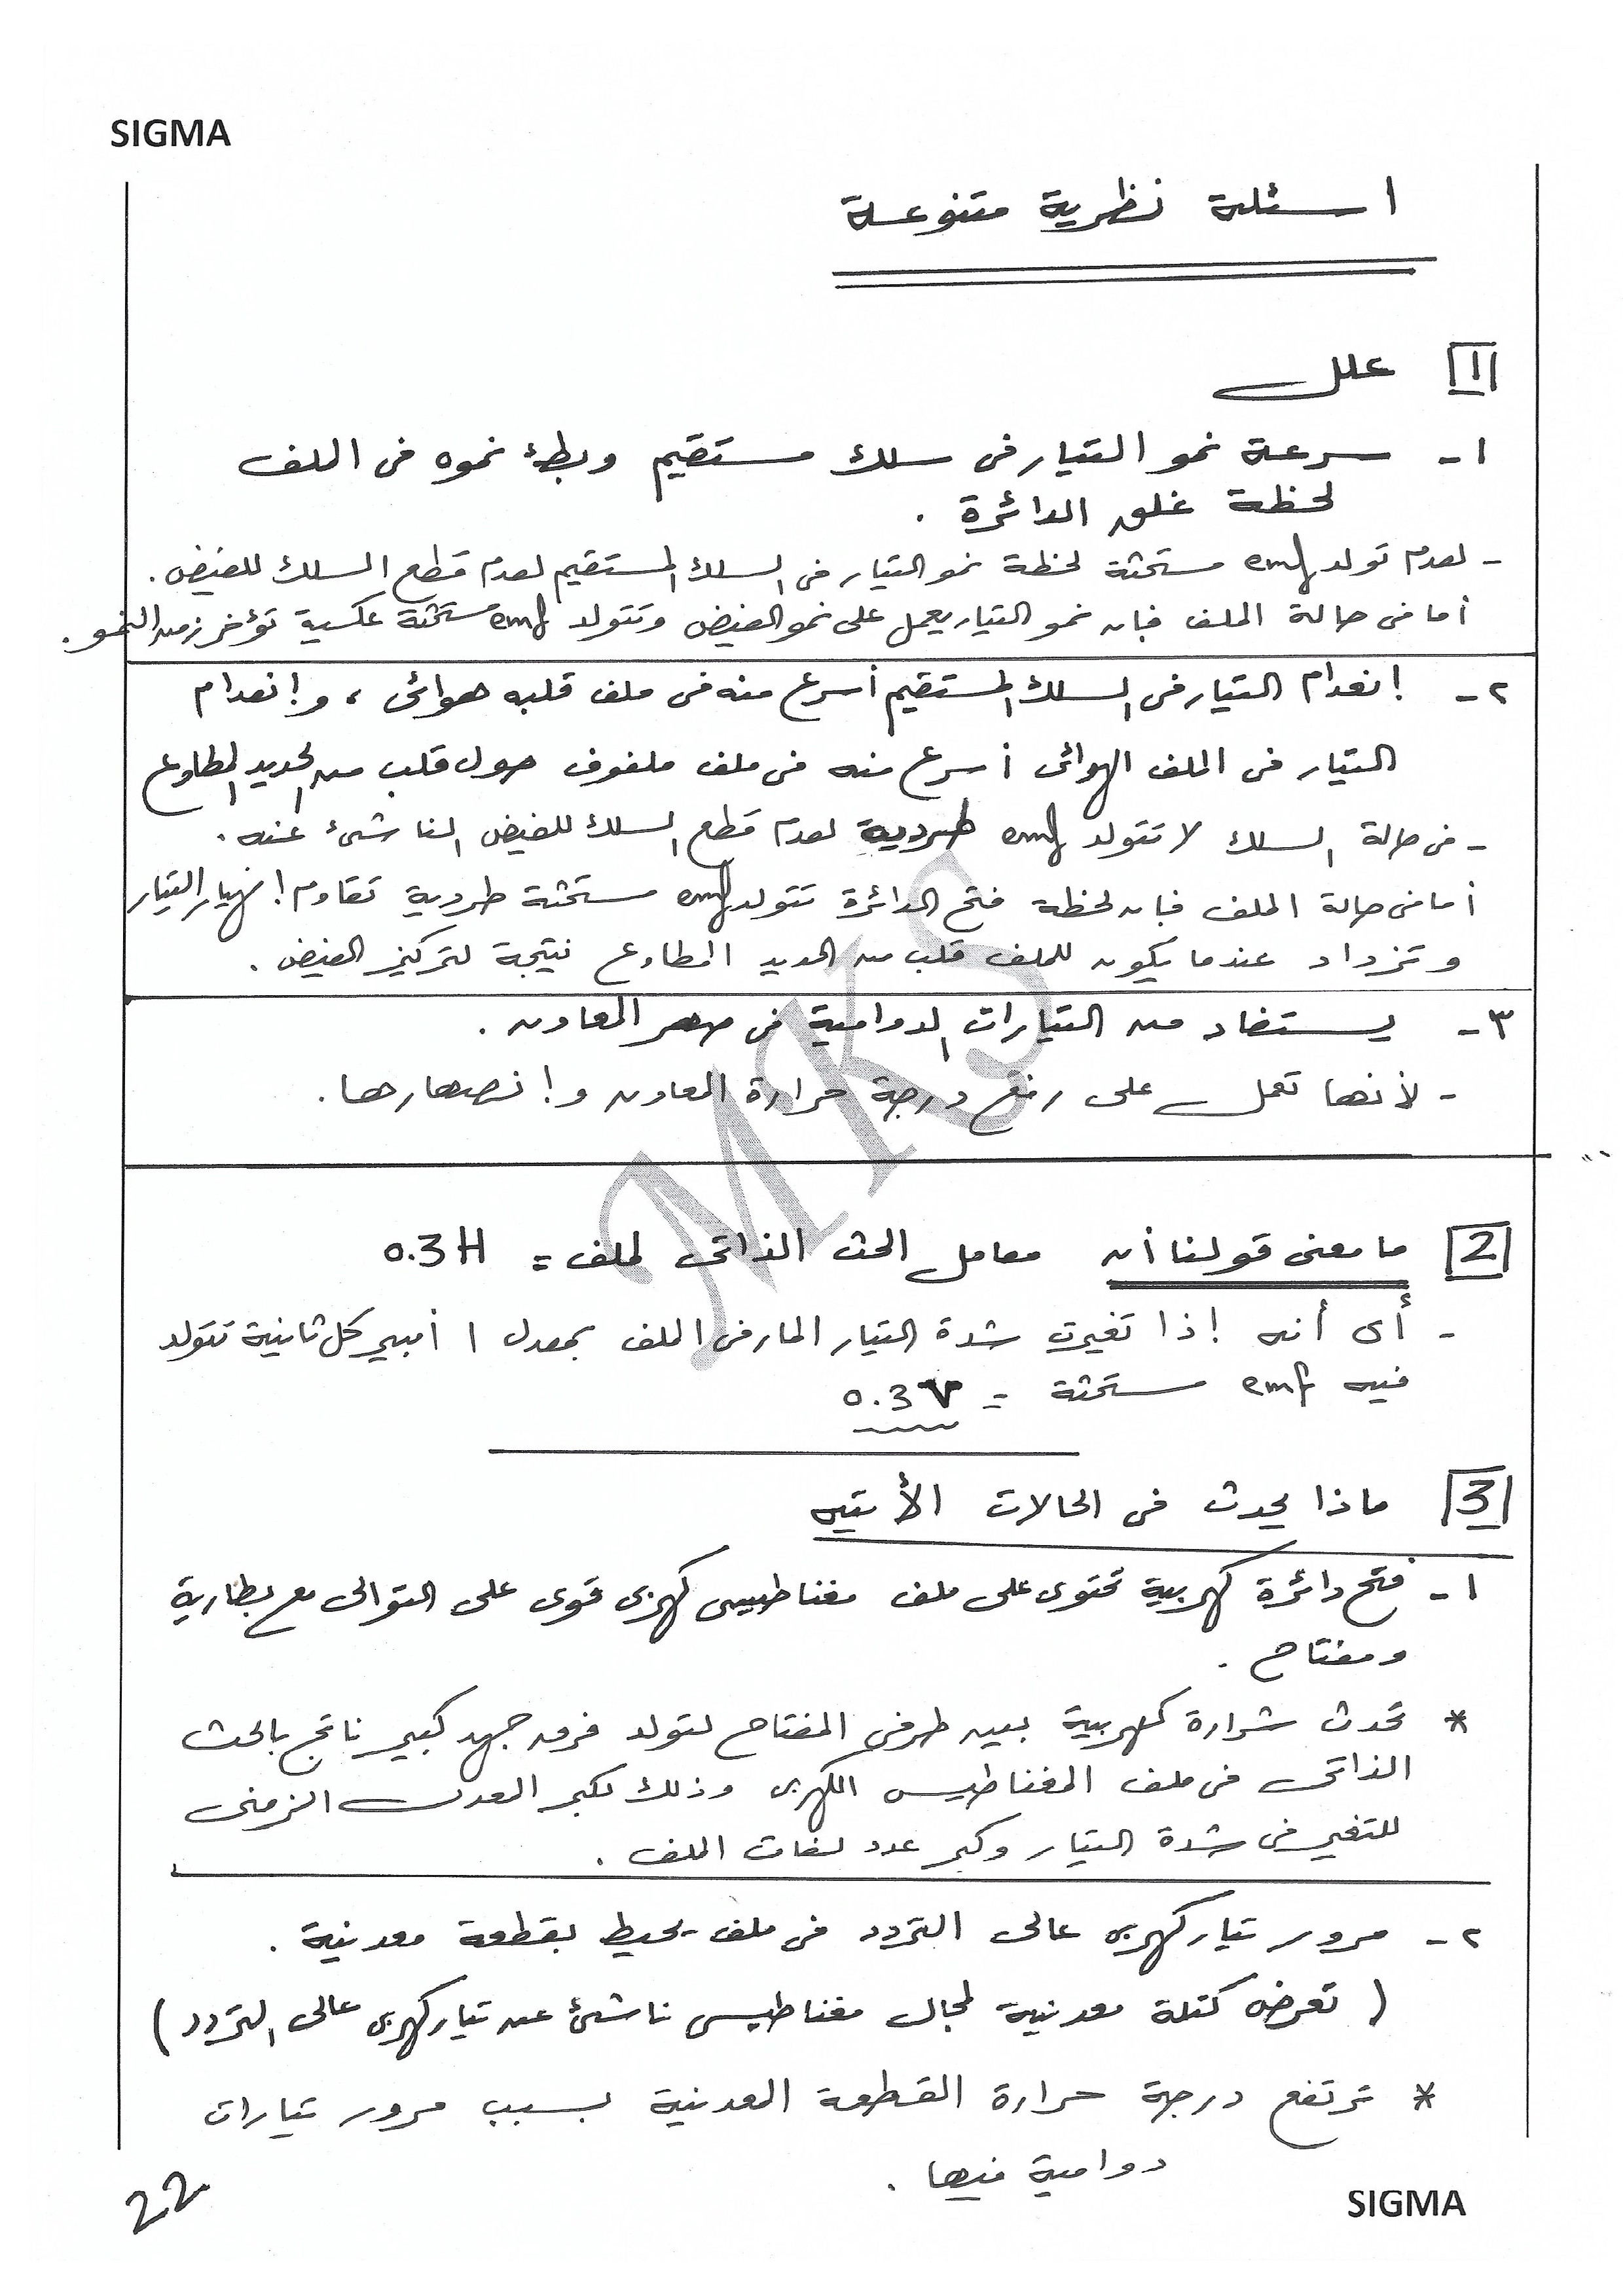 SIGMA
اسئلة نظرية متنوعة
1 علل
١- سرعة نمو التيار فى سلك مستقيم وبطئ نموه فى الملف
لحظة غلق الدائرة .
- لعدم تولد emf مستحثة لحظة نمو التيار فى السلك المستقيم لعدم قطع السلك للفيض .
أما فى حالة الملف فإن نمو التيار يعمل على نمو الفيض وتتولد emf مستحثة عكسية تؤخر زمن النمو .
٢- إنعدام التيار فى السلك المستقيم أسرع منه فى ملف قلبه هوائى ، وإنعدام
التيار فى الملف الهوائى أسرع منه فى ملف ملفوف حول قلب من الحديد المطاوع
- فى حالة السلك لا تتولد emf طردية لعدم قطع السلك للفيض الناشئ عنه .
أما فى حالة الملف فإن لحظة فتح الدائرة تتولد emf مستحثة طردية تقاوم إنهيار التيار
وتزداد عندما يكون للملف قلب من الحديد المطاوع نتيجة لتركيز الفيض .
٣- يستفاد من التيارات الدوامية فى صهر المعادن .
- لأنها تعمل على رفع درجة حرارة المعادن وإنصهارها .
2 ما معنى قولنا أن معامل الحث الذاتى لملف = 0.3 H
- أى أنه إذا تغيرت شدة التيار المار فى الملف بمعدل ١ أمبير كل ثانية تتولد
فيه emf مستحثة = 0.3 V
3 ماذا يحدث فى الحالات الأتيه
١- فتح دائرة كهربية تحتوى على ملف مغناطيسى كهربى قوى على التوالى مع بطارية
ومفتاح .
* تحدث شرارة كهربية بين طرفى المفتاح لتولد فرق جهد كبير ناتج بالحث
الذاتى فى ملف المغناطيس الكهربى وذلك لكبر المعدل الزمنى
للتغير فى شدة التيار وكبر عدد لفات الملف .
٢- مرور تيار كهربى عالى التردد فى ملف يحيط بقطعة معدنية .
( تعرض كتلة معدنية لمجال مغناطيسى ناشئ عن تيار كهربى عالى التردد )
* ترتفع درجة حرارة القطعة المعدنية بسبب مرور تيارات
دوامية فيها .
22
SIGMA
MKS